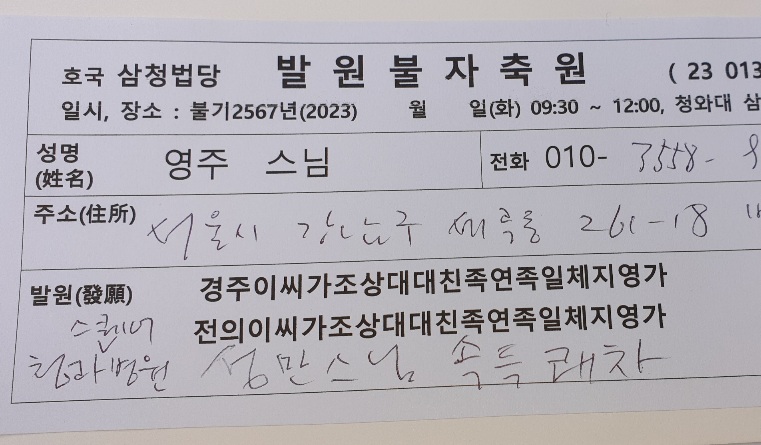 호국 삼청법당 발 원 불 자 축 원 ( 23 013
일시, 장소 : 불기2567년(2023) 월 일(화) 09:30 ~ 12:00, 청와대 삼
성명
(姓名) 영주 스님 전화 010- 3558-
주소(住所) 서울시 강남구 세곡동 261-18
발원(發願) 경주이씨가조상대대친족연족일체지영가
전의이씨가조상대대친족연족일체지영가
병원 성만스님 속득쾌차